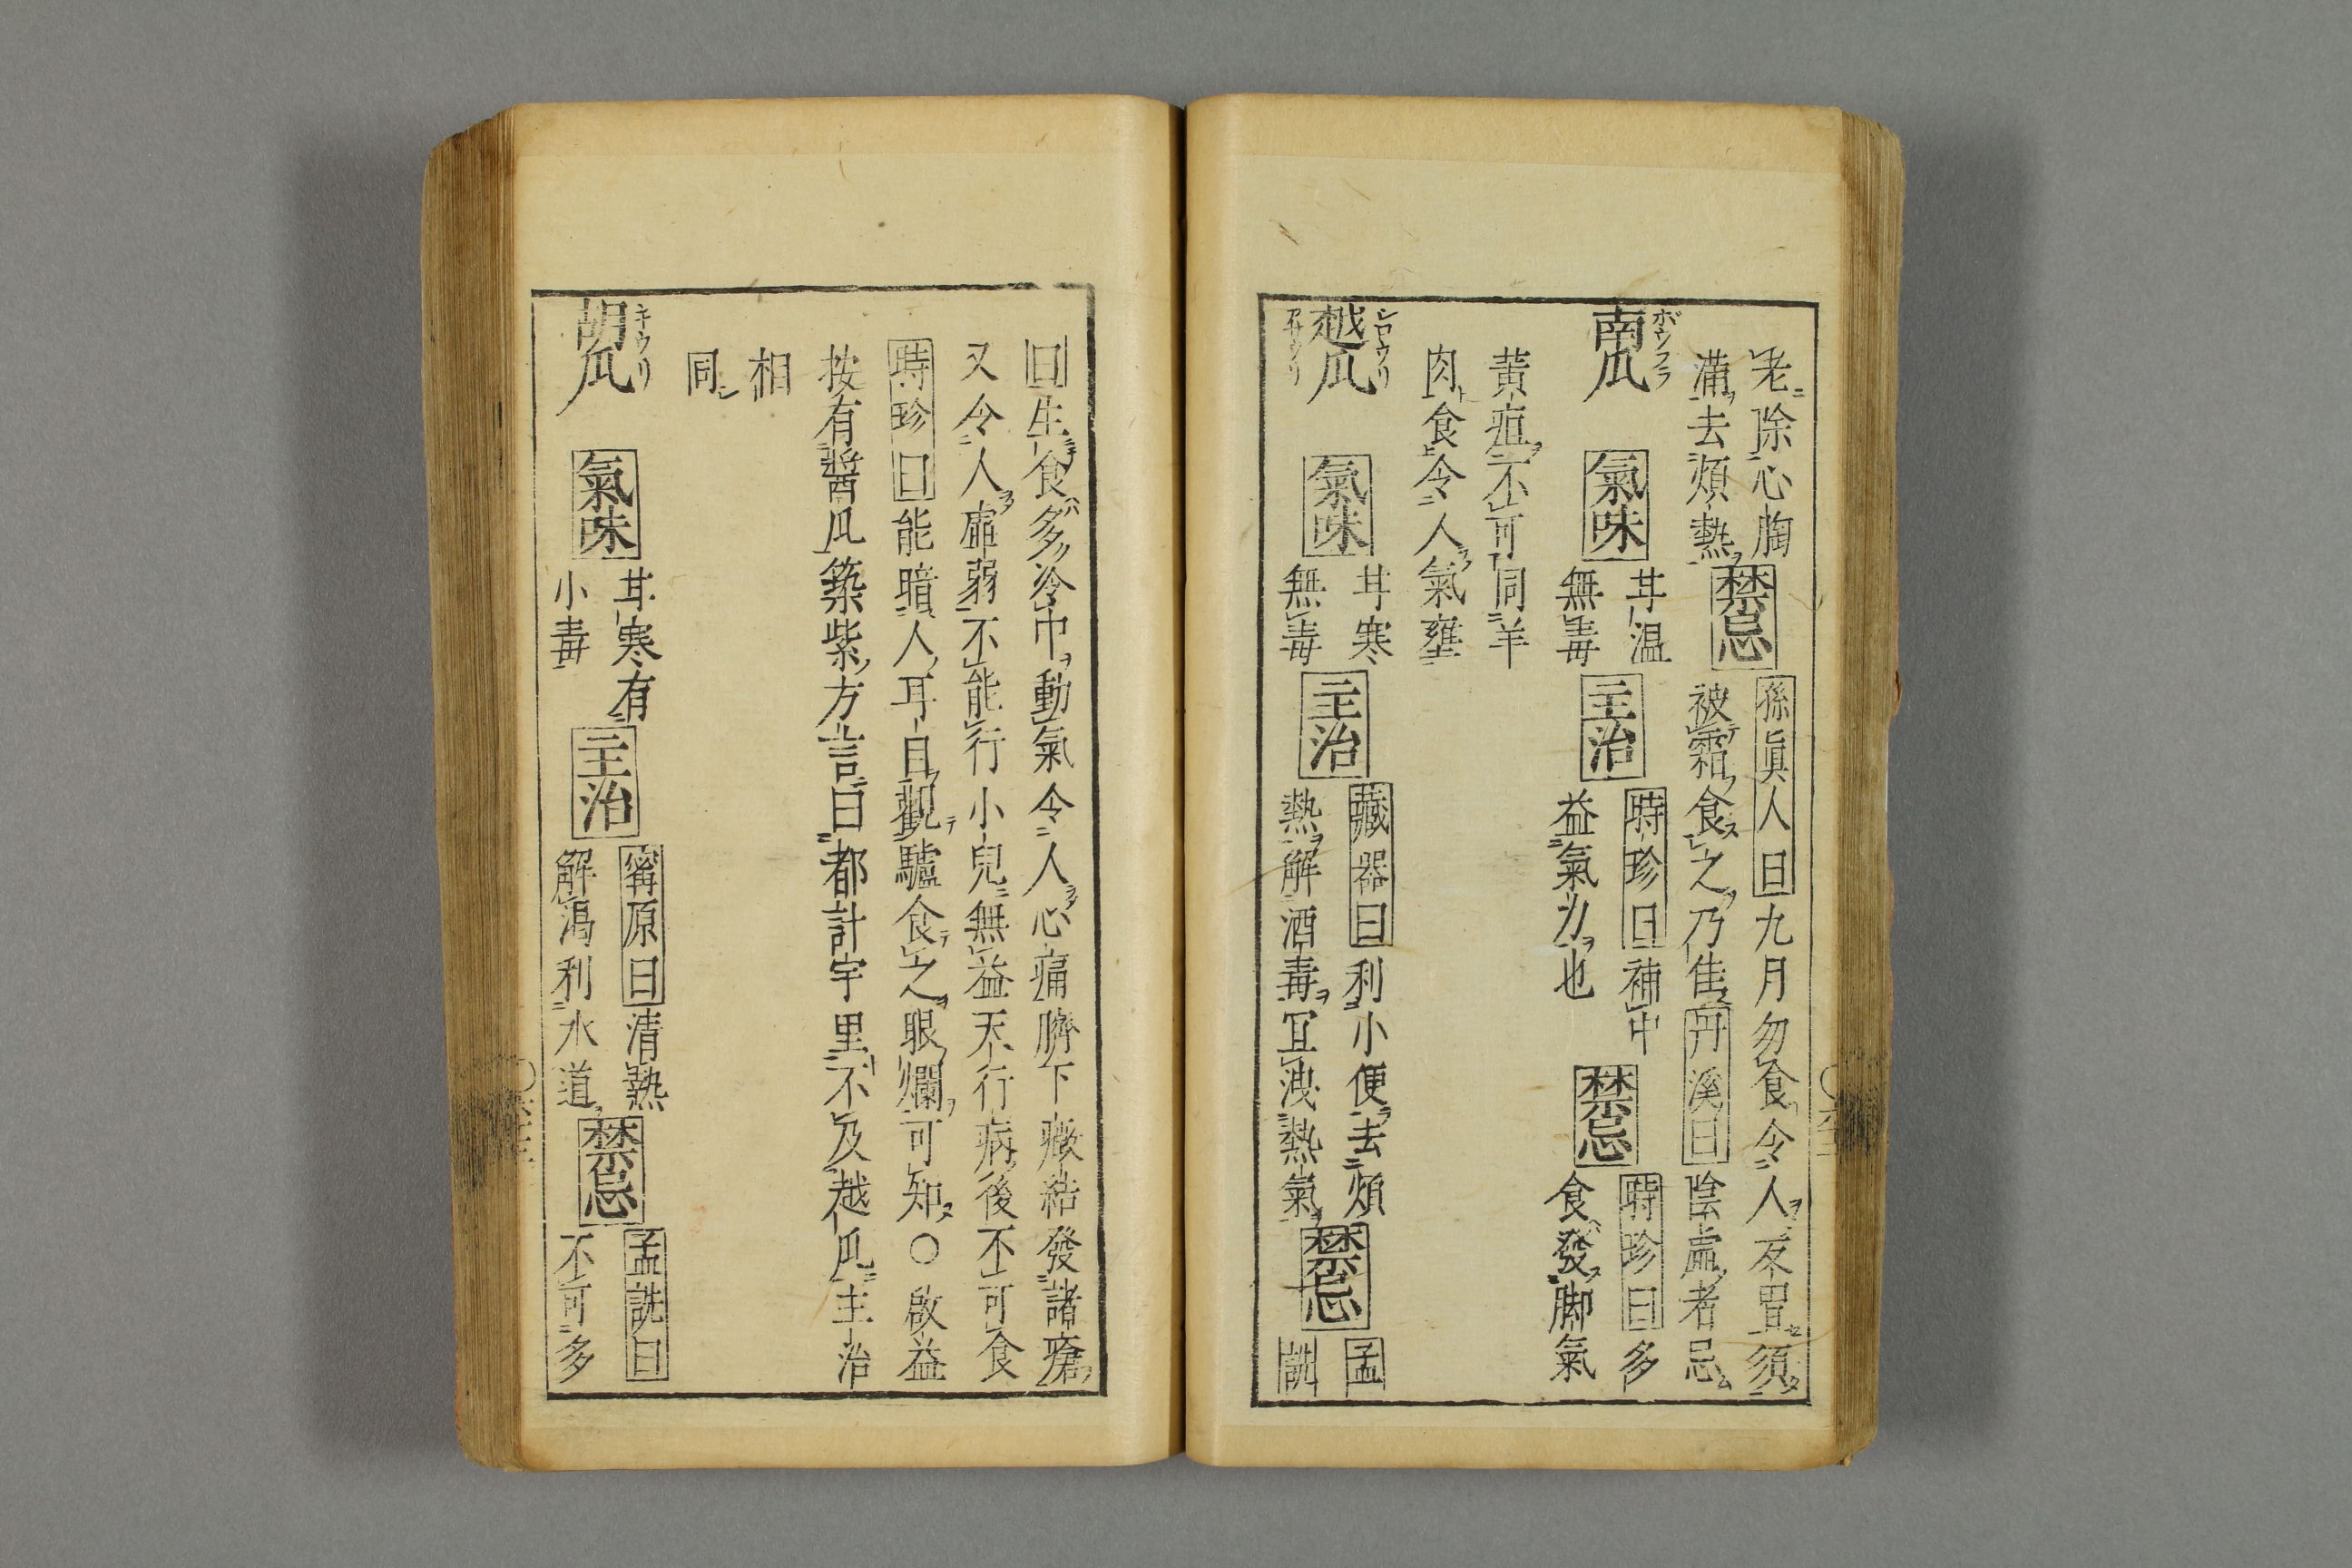 老除心胸
滿去煩熱
禁忌
孫眞人曰九月勿食令人反胃須
被霜食之乃佳丹溪曰陰虛者忌
ボウフラ
南瓜
氣味
甘温
無毒
主治
時珍曰補中
益氣力也
禁忌
時珍曰多
食發脚氣
黃疸不可同羊
肉食令人氣壅
シロウリ
越瓜
アサウリ
氣味
甘寒
無毒
主治
藏器曰利小便去煩
熱解酒毒宜洩熱氣
禁忌
孟
詵
曰生食多冷中動氣令人心痛臍下癥結發諸瘡
又令人虛弱不能行小兒無益天行病後不可食
時珍曰能暗人耳目觀驢食之眼爛可知〇啟益
按有醬瓜築紫方言曰都計宇里不及越瓜主治
相
同
キウリ
胡瓜
氣味
甘寒有
小毒
主治
甯原曰清熱
解渴利水道
禁忌
孟詵曰
不可多